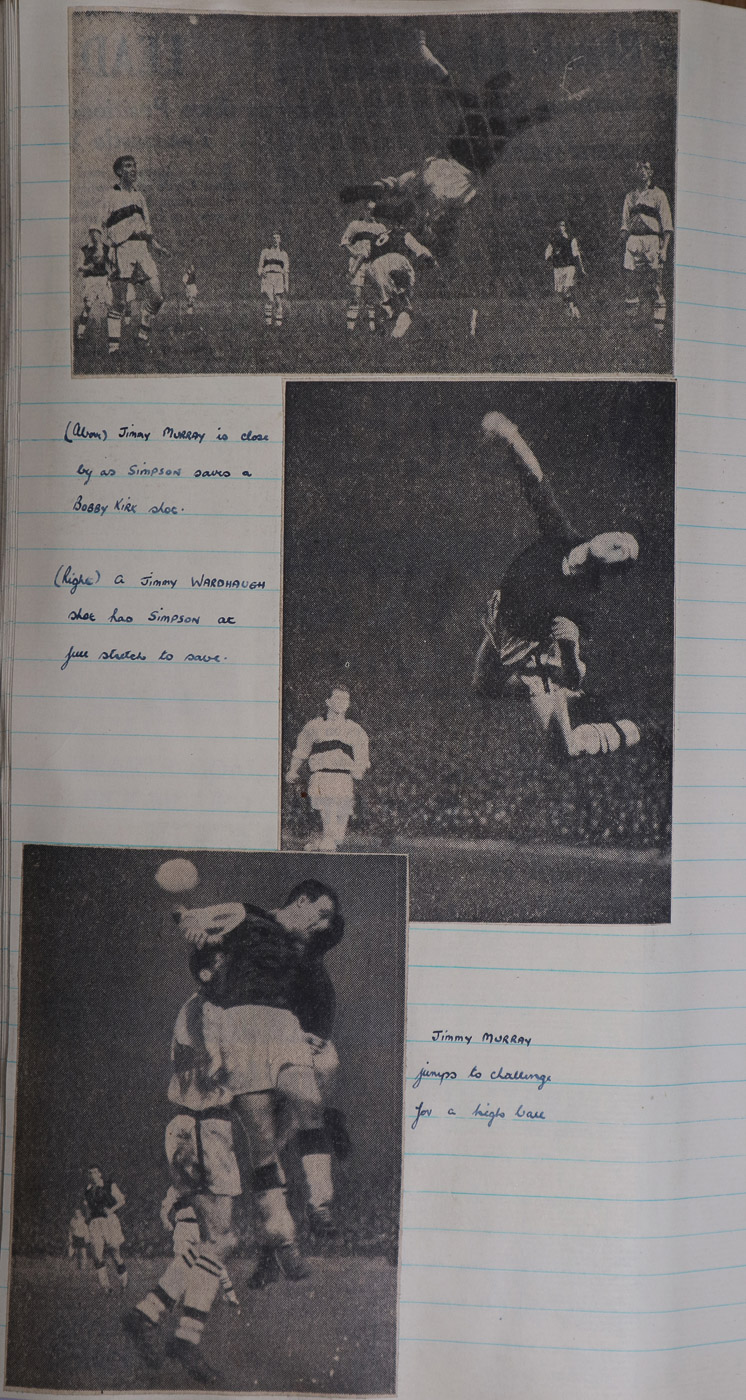 (Above) Jimmy MURRAY is close
by as SIMPSON saves a
BOBBY KIRK shot.
(Right) A Jimmy WARDHAUGH
shot has SIMPSON at
full stretch to save.
Jimmy MURRAY
jumps to challenge
for a high ball